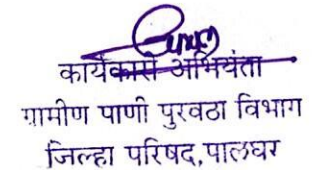 कार्यकारी अभियंता
ग्रामीण पाणी पुरवठा विभाग
जिल्हा परिषद,पालघर